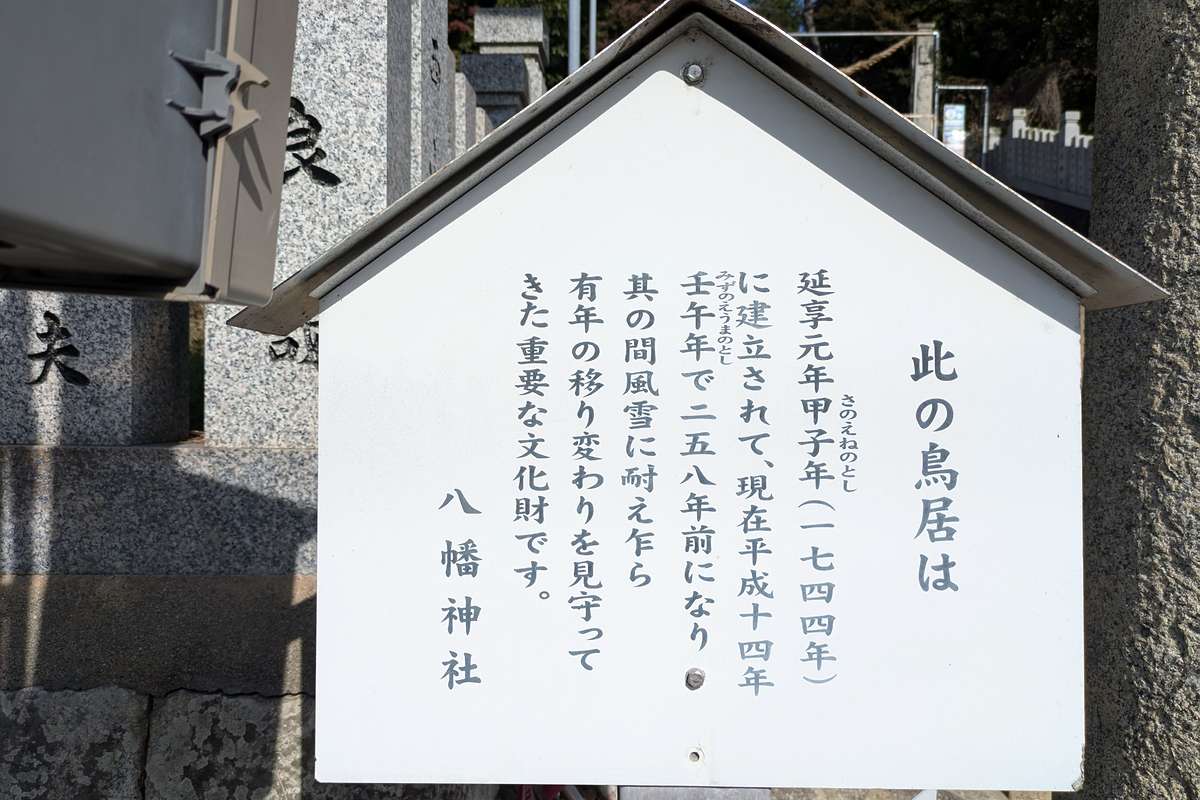 此の鳥居は
延享元年甲子年(一七四四年)
きのえねのとし
に建立されて、現在平成十四年
壬午年で二五八年前になり
みずのえうまのとし
其の間風雪に耐え乍ら
有年の移り変わりを見守って
きた重要な文化財です。
八幡神社
良
夫